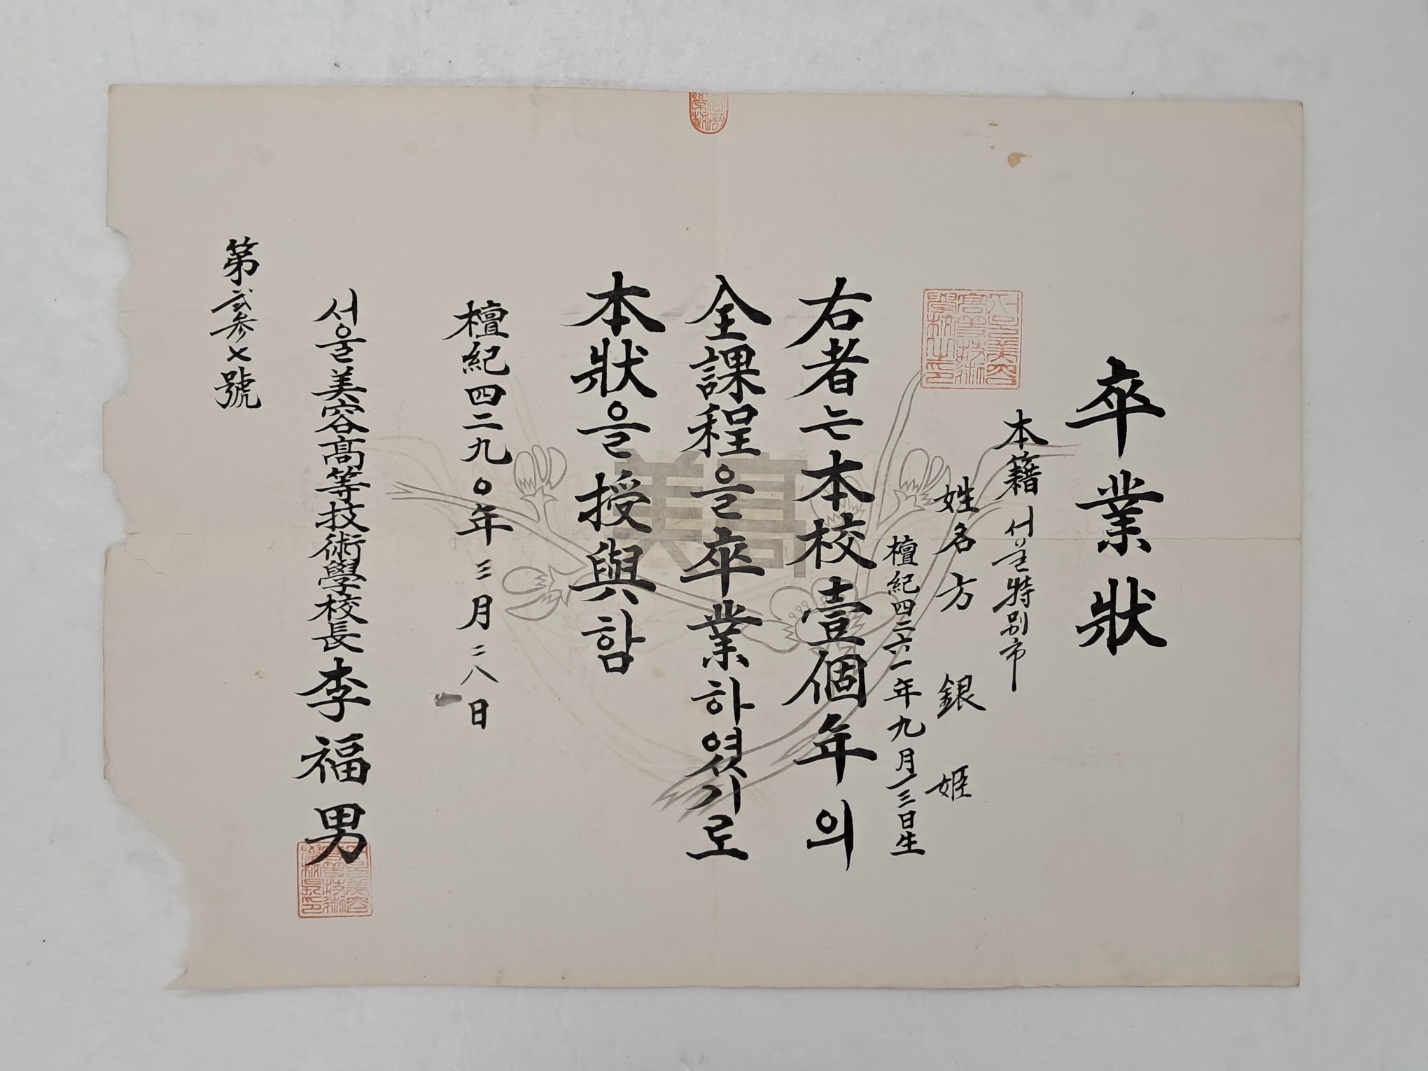 卒業狀
本籍 서울特別市
姓名 方 銀 姬
檀紀四二六一年九月一三日生
右者는本校壹個年의
全課程을卒業하엿기로
本狀을授與함
檀紀四二九〇年三月二八日
서울美容高等技術學校長 李福男
第弐参七號
美高